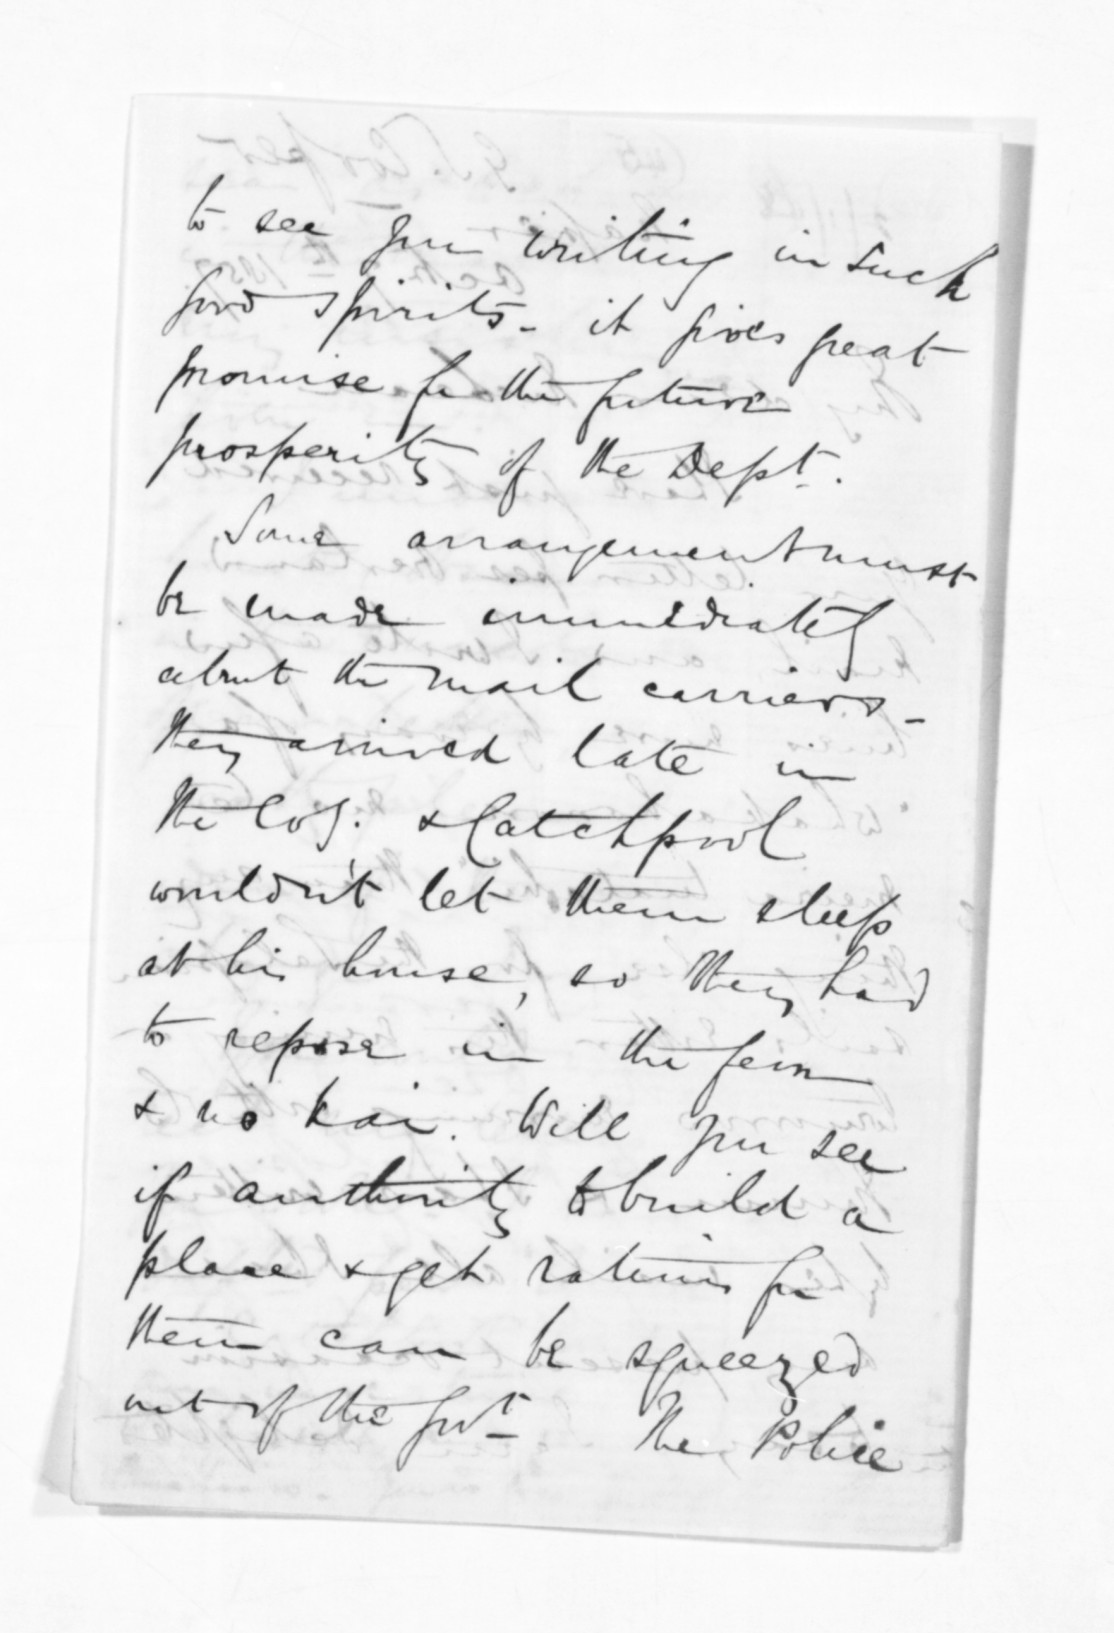 to see you writing in such
good spirits - it gives great
promise for the future
prosperity of the Dept.
Some arrangement must
be made immediately
about the mail carriers -
they arrived late in
the &Catchpool
wouldn't let them sleep
at his house, so they had
to repose in the fern
& no kai. Will you see
if authority to build a
place & get rations for
them can be squeezed
out of the Govt - The Police